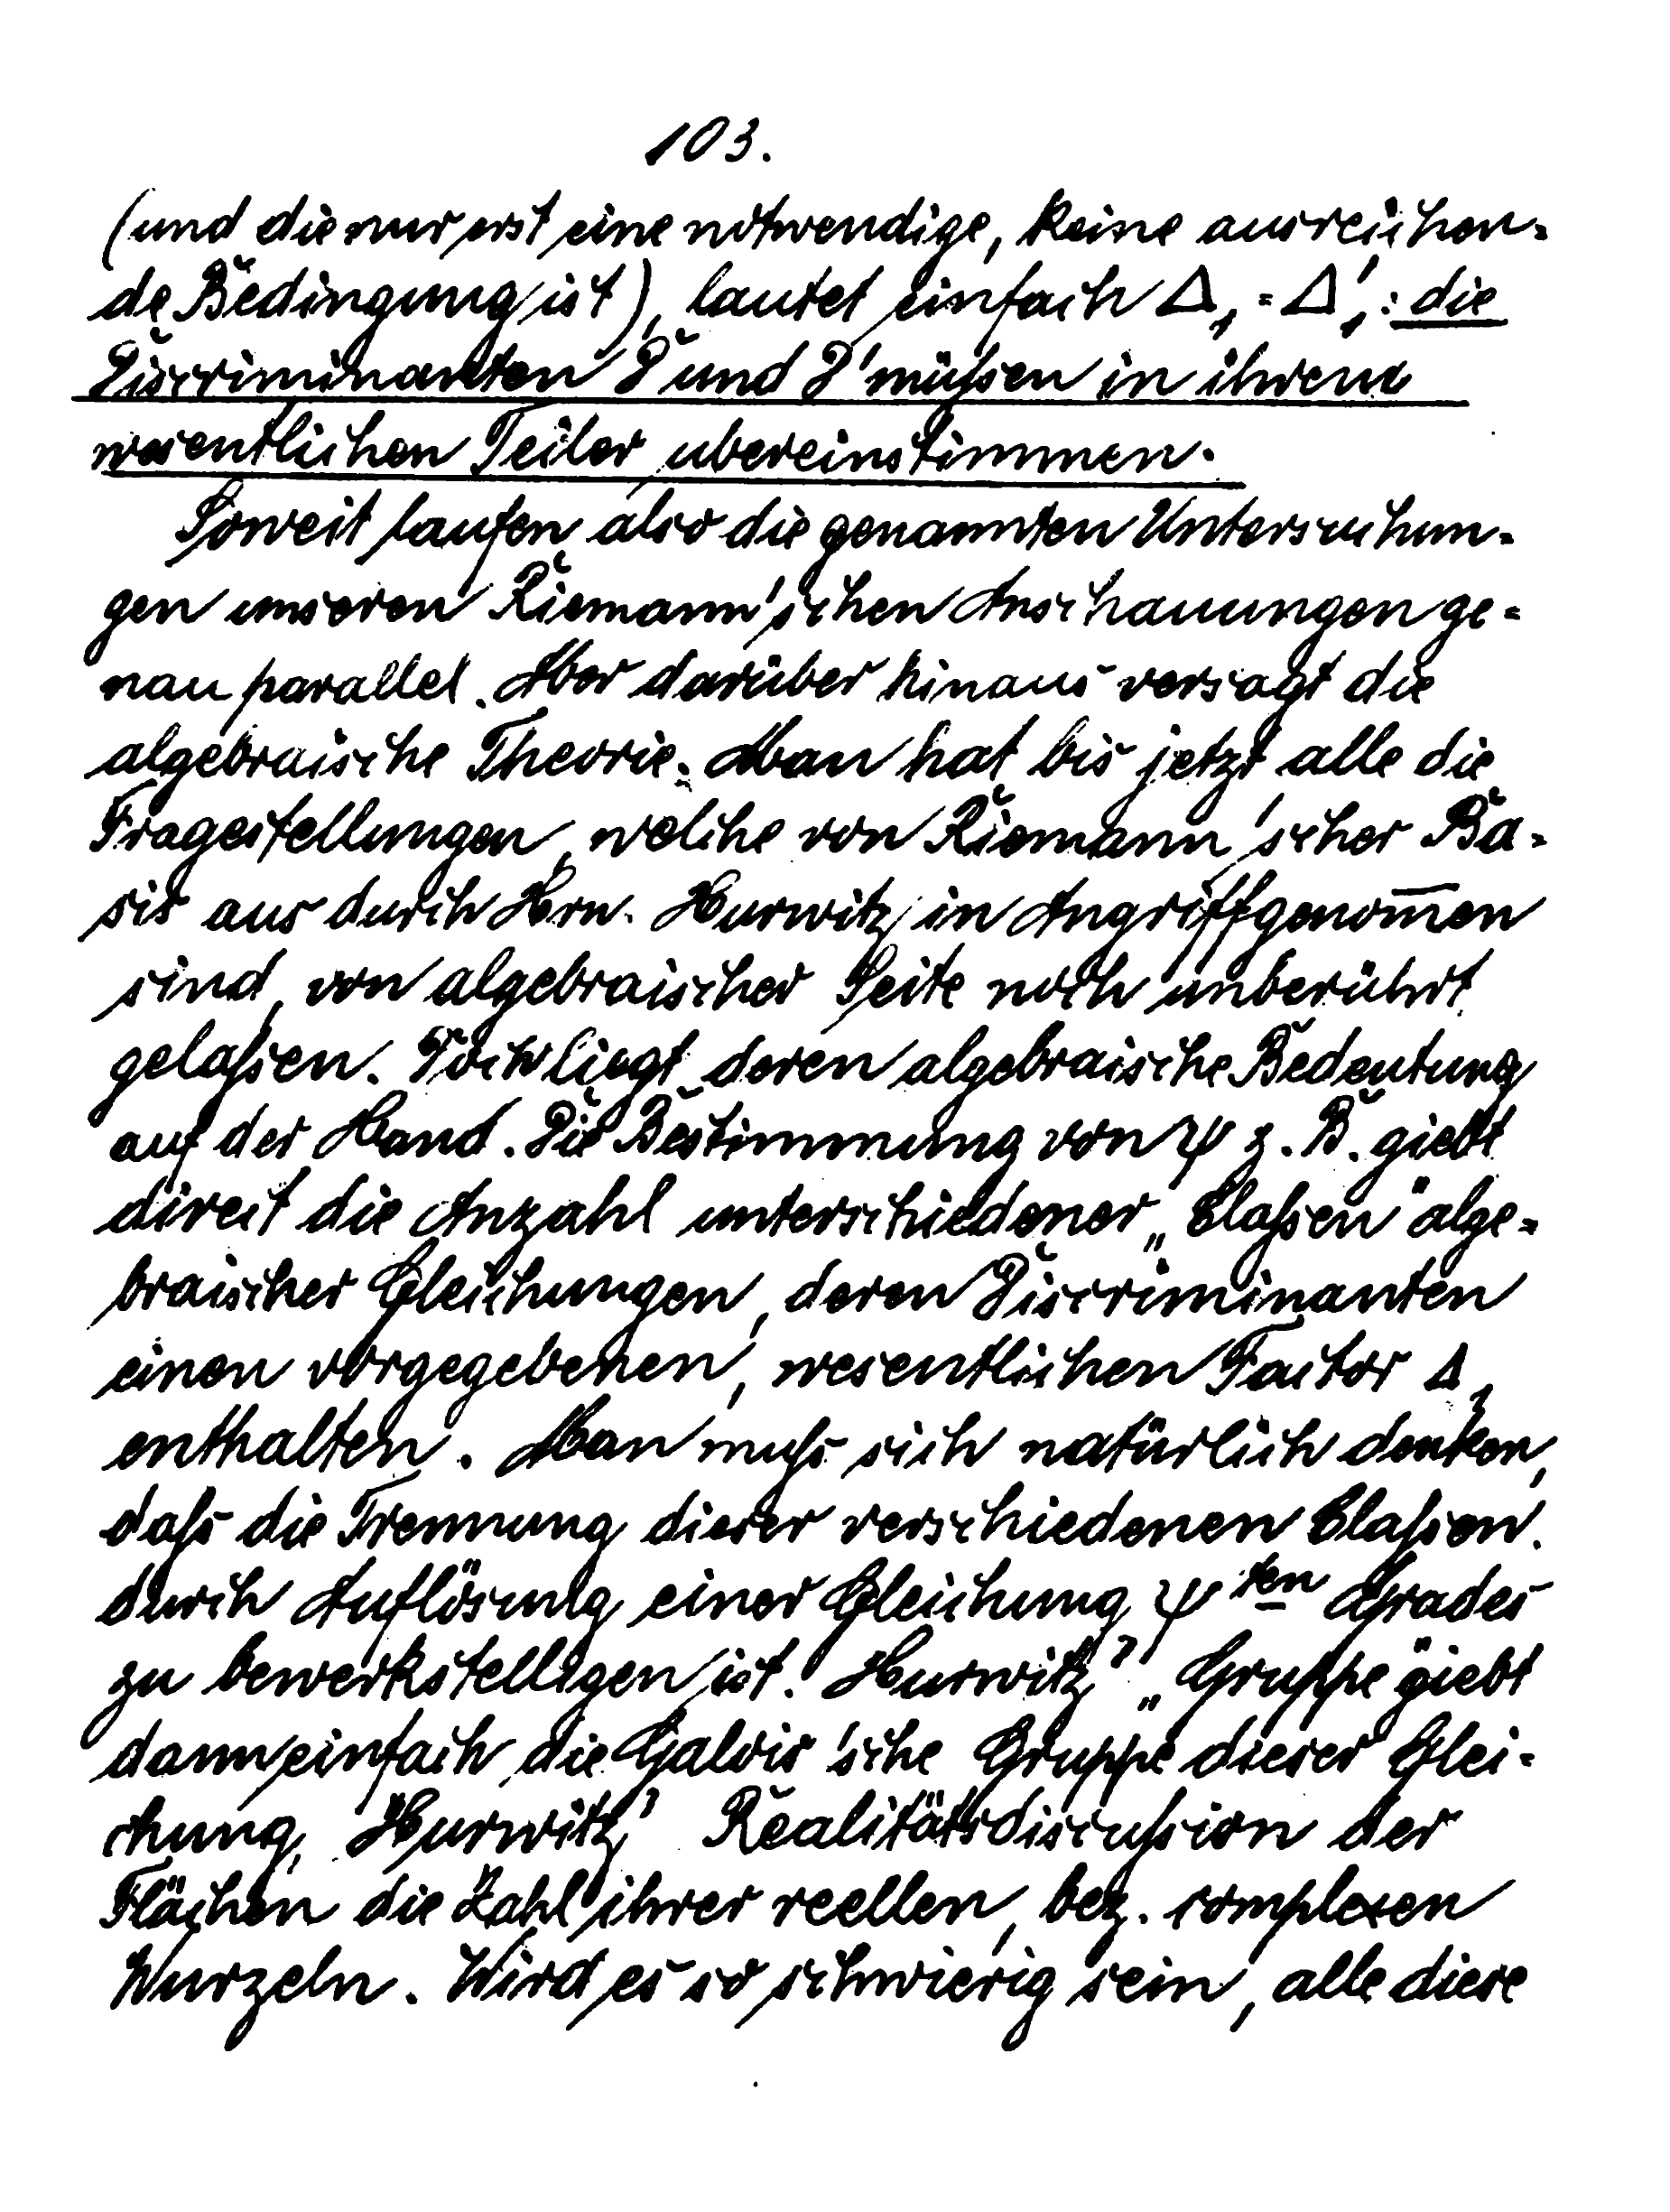 103.
(und die nur erst eine notwendige, keine ausreichen-
de Bedingung ist), lautet einfach Δ₁ = Δ'₁: die
Discriminanten D und D' müssen in ihrem
wesentlichen Teiler übereinstimmen.
Soweit laufen also die genannten Untersuchun-
gen unseren Riemann'schen Anschauungen ge-
nau parallel. Aber darüber hinaus versagt die
algebraische Theorie. Man hat bis jetzt alle die
Fragestellungen, welche von Riemann'scher Ba-
sis aus durch Hrn. Hurwitz in Angriff genom̅en
sind, von algebraischer Seite noch unberührt
gelaſsen. Doch liegt deren algebraische Bedeutung
auf der Hand. Die Bestimmung von ψ z. B. giebt
direct die Anzahl unterschiedener „Claſsen" alge-
braischer Gleichungen, deren Discriminanten
einen vorgegebenen, wesentlichen Factor Δ₁
enthalten. Man muſs sich natürlich denken,
daſs die Trennung dieser verschiedenen Claſsen
durch Auflösung einer Gleichung ψten Grades
zu bewerkstelligen ist. Hurwitz' „Gruppe" giebt
dann einfach die Galois'sche Gruppe dieser Glei-
chung, Hurwitz' Realitätsdiscuſsion der
Flächen die Zahl ihrer reellen, bez. complexen
Wurzeln. Wird es so schwierig sein, alle diese